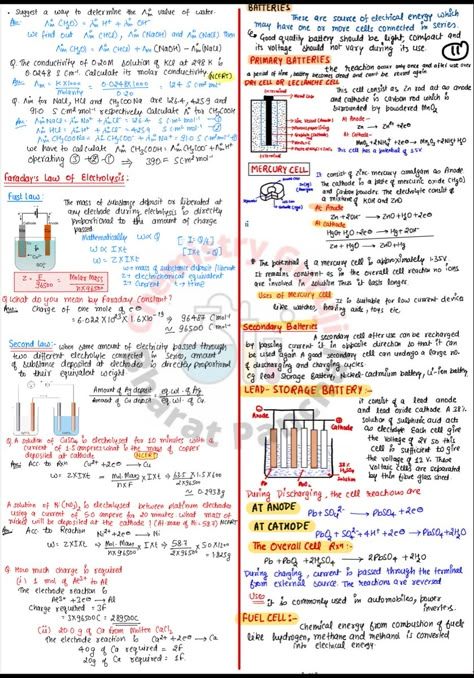 • Suggest a way to determine the Λ°m value of water.
Ans: Λ°m (H₂O) = Λ°m H⁺ + Λ°m OH⁻
We find out Λ°m (HCl), Λ°m (NaOH) and Λ°m (NaCl) Then
Λ°m (H₂O) = Λ°m (HCl) + Λ°m (NaOH) - Λ°m (NaCl)
Q. The conductivity of 0.20M solution of KCl at 298 K is
0.0248 S cm⁻¹. Calculate its molar conductivity. NCERT
Ans: Λm = K×1000 / Molarity = 0.0248×1000 / 0.20 = 124 S cm² mol⁻¹
Q. Λ°m for NaCl, HCl and CH₃COONa are 126.4, 425.9 and
91.0 S cm² mol⁻¹ respectively Calculate Λ° for CH₃COOH
we have to calculate Λ°m CH₃COOH = Λ°m CH₃COO⁻ + Λ°m H⁺
⇒ 390.5 S cm² mol⁻¹
Faraday's Law of Electrolysis:
First law:
The mass of substance deposit or liberated at
any electrode during electrolysis is directly
proportional to the amount of charge
passed.
Mathematically w∝Q [I=Q/t]
w = ZQ [It=Q]
w = ZIxt
w = mass of substance deposit/liberat
Z = electrochemical equivalent
I = Current t = time
Z = E / 96500 = Molar Mass / n×96500
Q. What do you mean by Faraday Constant?
Ans: Charge of one mole of e⊖
= 6.022×10²³×1.6×10⁻¹⁹ ⇒ 96487 C mol⁻¹
≈ 96500 C mol⁻¹
Second law:- When same amount of electricity passed through
two different electrolyte connected in series, amount
of substance deposited at electrodes is directly proportional
to their equivalent weight.
Amount of Ag deposit / Amount of Cu deposit = eq. wt. of Ag / eq. wt. of Cu
Q. A solution of CuSO₄ is electrolysed for 10 minutes with a
current of 1.5 amperes what is the mass of copper
deposited at cathode NCERT
Ans: Acc to Rxn Cu²⁺ + 2e⊖ → Cu
w = Z×I×t = Mol. Mass / n×F × I×t = 63.5×1.5×600 / 2×96500
= 0.2938g
A solution of Ni(NO₃)₂ is electrolysed between platinum electrodes
using a current of 5.0 ampere for 20 minutes. what mass of
nickel will be deposited at the cathode? (At. mass of Ni=58.7) NCERT
Ans: Acc to Reaction Ni²⁺ + 2e⊖ → Ni
w = Z×I×t ⇒ Mol. Mass / 2×96500 × I×t ⇒ 58.7 / 2×96500 × 5.0×1200
= 1.825g
Q. How much charge is required
(i) 1 mol of Al³⁺ to Al
The electrode reaction is
Al³⁺ + 3e⊖ → Al
Charge required = 3F
= 3×96500C = 289500C
(ii) 20.0 g of Ca from Molten CaCl₂
The electrode reaction is Ca²⁺ + 2e⊖ → Ca
40g of Ca required = 2F
20g of Ca required = 1F.
BATTERIES
11
These are source of electrical energy which
may have one or more cells connected in series.
Good quality battery should be light, compact and
its voltage should not vary during its use.
PRIMARY BATTERIES
the reaction occur only once and after use over
a period of time, battery becomes dead and can't be reused again
DRY CELL OR LECLANCHE CELL
This cell consist as Zn rod as anode
and cathode is carbon rod which is
surrounded by powdered MnO₂
At Anode -
Zn → Zn²⁺ + 2e⊖
At Cathode -
This cell has a potential of 1.5V
MERCURY CELL
It consist of zinc-mercury amalgam as Anode
The cathode is a paste of mercuric oxide (HgO)
and carbon powder. The electrolyte consist of
a mixture of KOH and ZnO
At Anode
Zn + 2OH⁻ → ZnO + H₂O + 2e⊖
At cathode
HgO + H₂O + 2e⊖ → Hg + 2OH⁻
Zn + HgO → ZnO + Hg
The potential of a mercury cell is approximately 1.35V.
It remains constant as in the overall cell reaction no ions
are involved in solution Thus it lasts longer.
Uses of Mercury cell
It is suitable for low current device
like watches, hearing aids, toys etc.
Secondary Batteries
A secondary cell after use can be recharged
by passing current in its opposite direction so that it can
be used again A good secondary cell can undergo a large no.
of discharging and charging cycles.
eg Lead Storage Battery, Nickel-cadmium battery, Li-ion battery
LEAD-STORAGE BATTERY:-
Anode
Cathode
It consist of a lead anode
and lead oxide cathode A 38%
solution of sulphuric acid acts
as electrolyte Each cell give
the voltage of 2V so this
cell is sufficient to give
the voltage of 12 V. These
voltaic cells are separated
by thin fibre glass sheet
During Discharging, the cell reactions are
AT ANODE
Pb + SO₄²⁻ → PbSO₄ + 2e⊖
AT CATHODE
PbO₂ + SO₄²⁻ + 4H⁺ + 2e⊖ → PbSO₄ + 2H₂O
The Overall Cell Rxn:
Pb + PbO₂ + 2H₂SO₄ → 2PbSO₄ + 2H₂O
During charging, current is passed through the terminal
from external source. The reactions are reversed
Uses It is commonly used in automobiles, power
inverters.
FUEL CELL:-
Chemical energy from combustion of fuels
like hydrogen, methane and methanol is converted
into electrical energy.